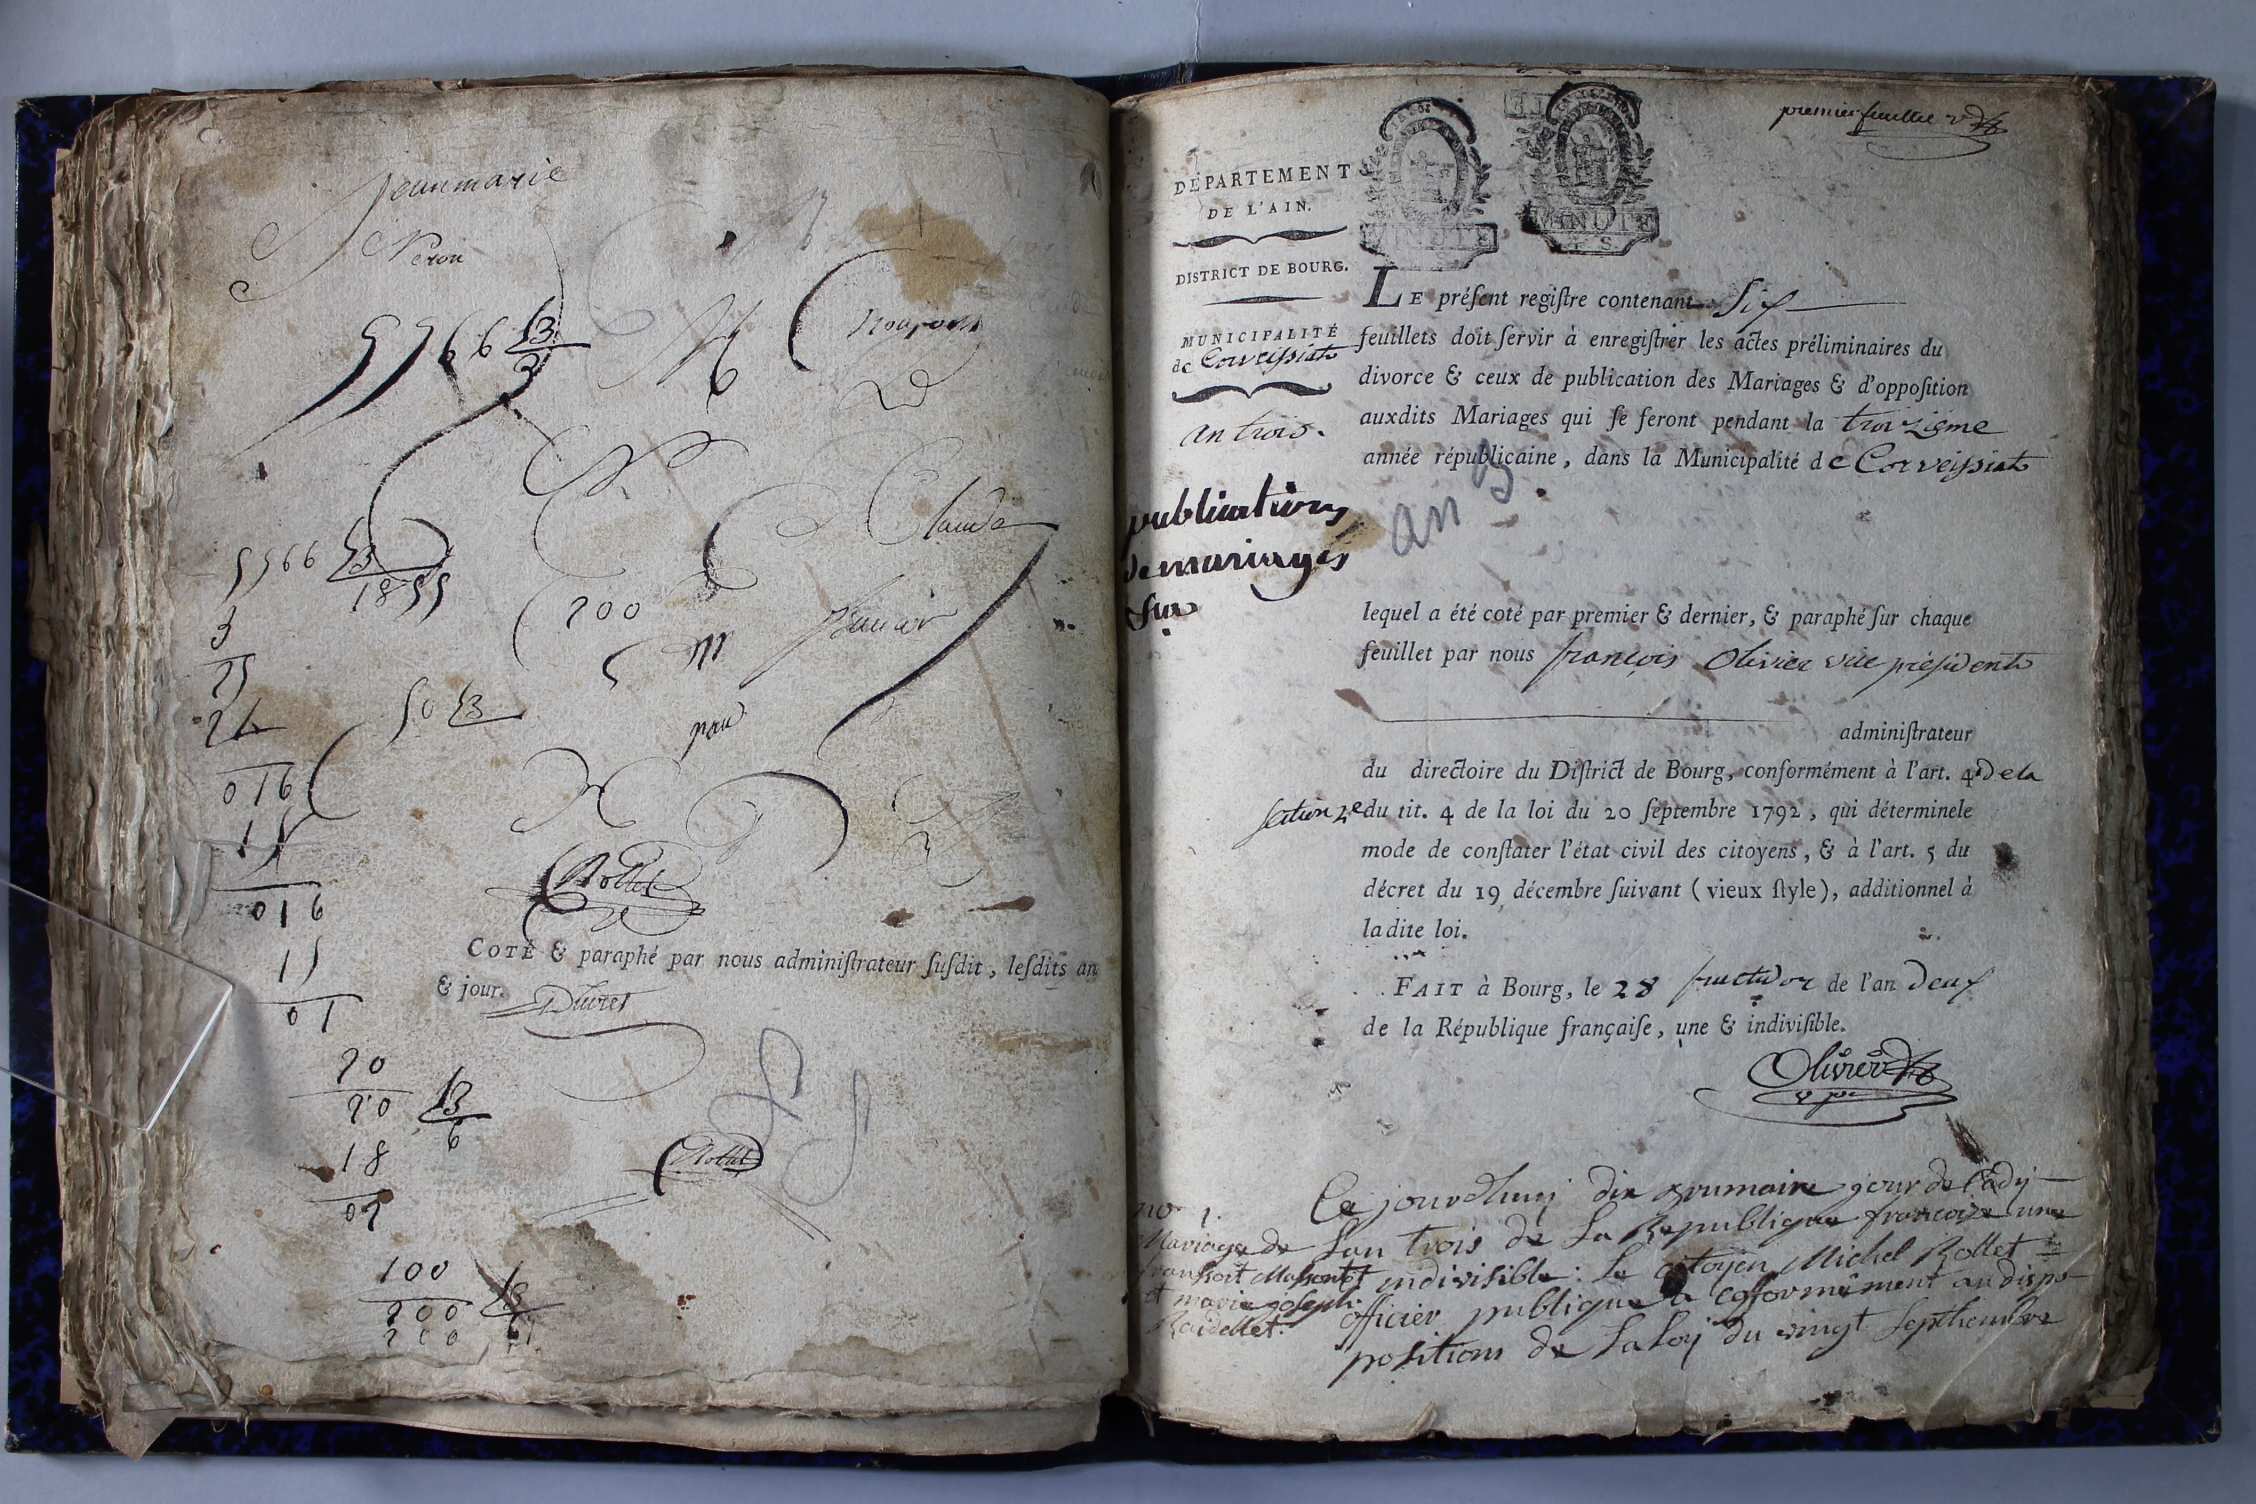 Jeanmarie
Neron
5566 3
3
nous
Claude
5566 3
1855
3
25
24
016
15
016
15
01
200
50 3
par
Rollet
COTÉ & paraphé par nous administrateur susdit, lesdits an
& jour. Duret
20
20 3
6
18
02
Rollet
100
200 3
200
premier feuillet
DÉPARTEMENT
DE L'AIN.
DISTRICT DE BOURG.
MUNICIPALITÉ
de Corveissiat
an trois.
publications
de mariages
Six
MINUTE
MINUTE
LE préſent regiſtre contenant Six
feuillets doit ſervir à enregiſtrer les actes préliminaires du
divorce & ceux de publication des Mariages & d'oppoſition
auxdits Mariages qui ſe feront pendant la troizième
année républicaine, dans la Municipalité de Corveissiat
an 3
lequel a été coté par premier & dernier, & paraphé ſur chaque
feuillet par nous françois Olivier vice président
adminiſtrateur
du directoire du Diſtrict de Bourg, conformément à l'art. 4 de la
section 2e du tit. 4 de la loi du 20 ſeptembre 1792, qui détermine le
mode de conſtater l'état civil des citoyens, & à l'art. 5 du
décret du 19 décembre ſuivant (vieux ſtyle), additionnel à
ladite loi.
FAIT à Bourg, le 28 fructidor de l'an deux
de la République françaiſe, une & indiviſible.
Olivier
v. p.
no 1.
Mariage de
et marie joseph
Ce jourdhuy dix brumaire jour de
Lan trois de La Republique françoise une
et indivisible: Le citoyen Michel Rollet
officier publique a conformément au dispo
positions de La Loy du vingt Septhembre